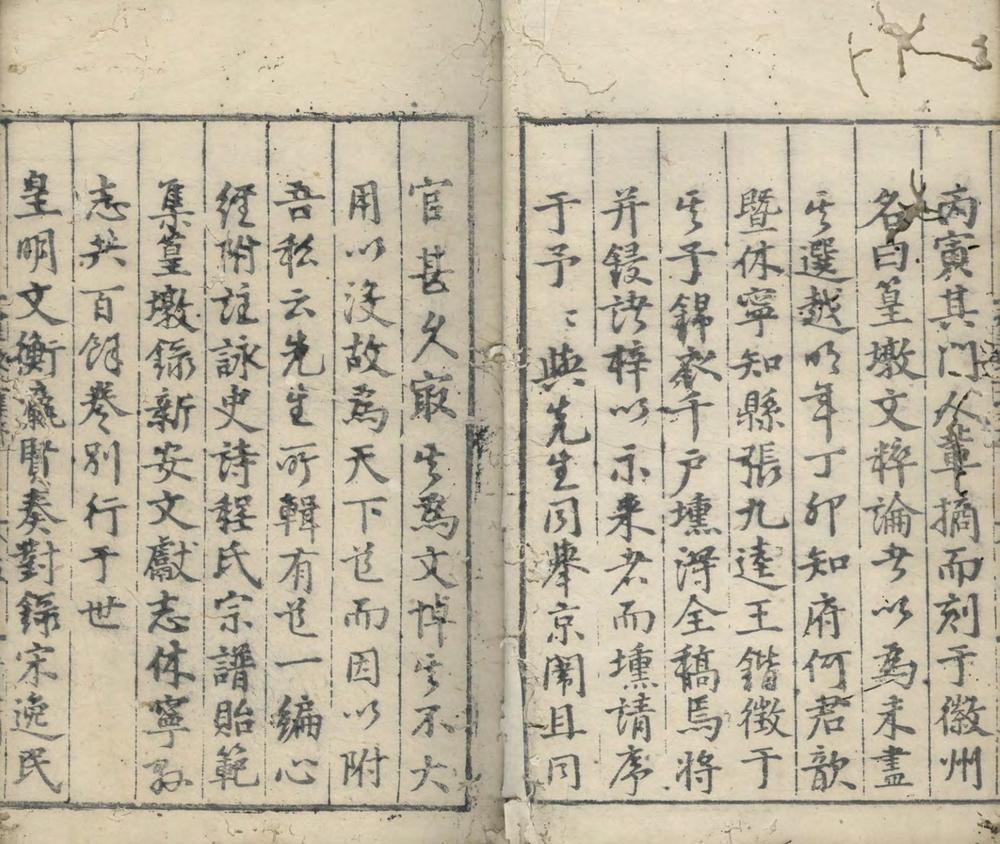 丙寅其門人輩摘而刻于徽州
名曰篁墩文粹論者以爲未盡
其選越明年丁卯知府何君歆
暨休寧知縣張九逵王鍇徵于
其子錦衣千戶壎得全稿焉將
并鋟諸梓以示來者而壎請序
于予〻與先生同舉京闈且同
官甚久㝡其爲文悼其不大
用以沒故爲天下道而因以附
吾私云先生所輯有道一編心
經附註詠史詩程氏宗譜貽範
集篁墩錄新安文獻志休寧縣
志共百餘卷別行于世
皇明文衡瀛賢奏對錄宋逸民